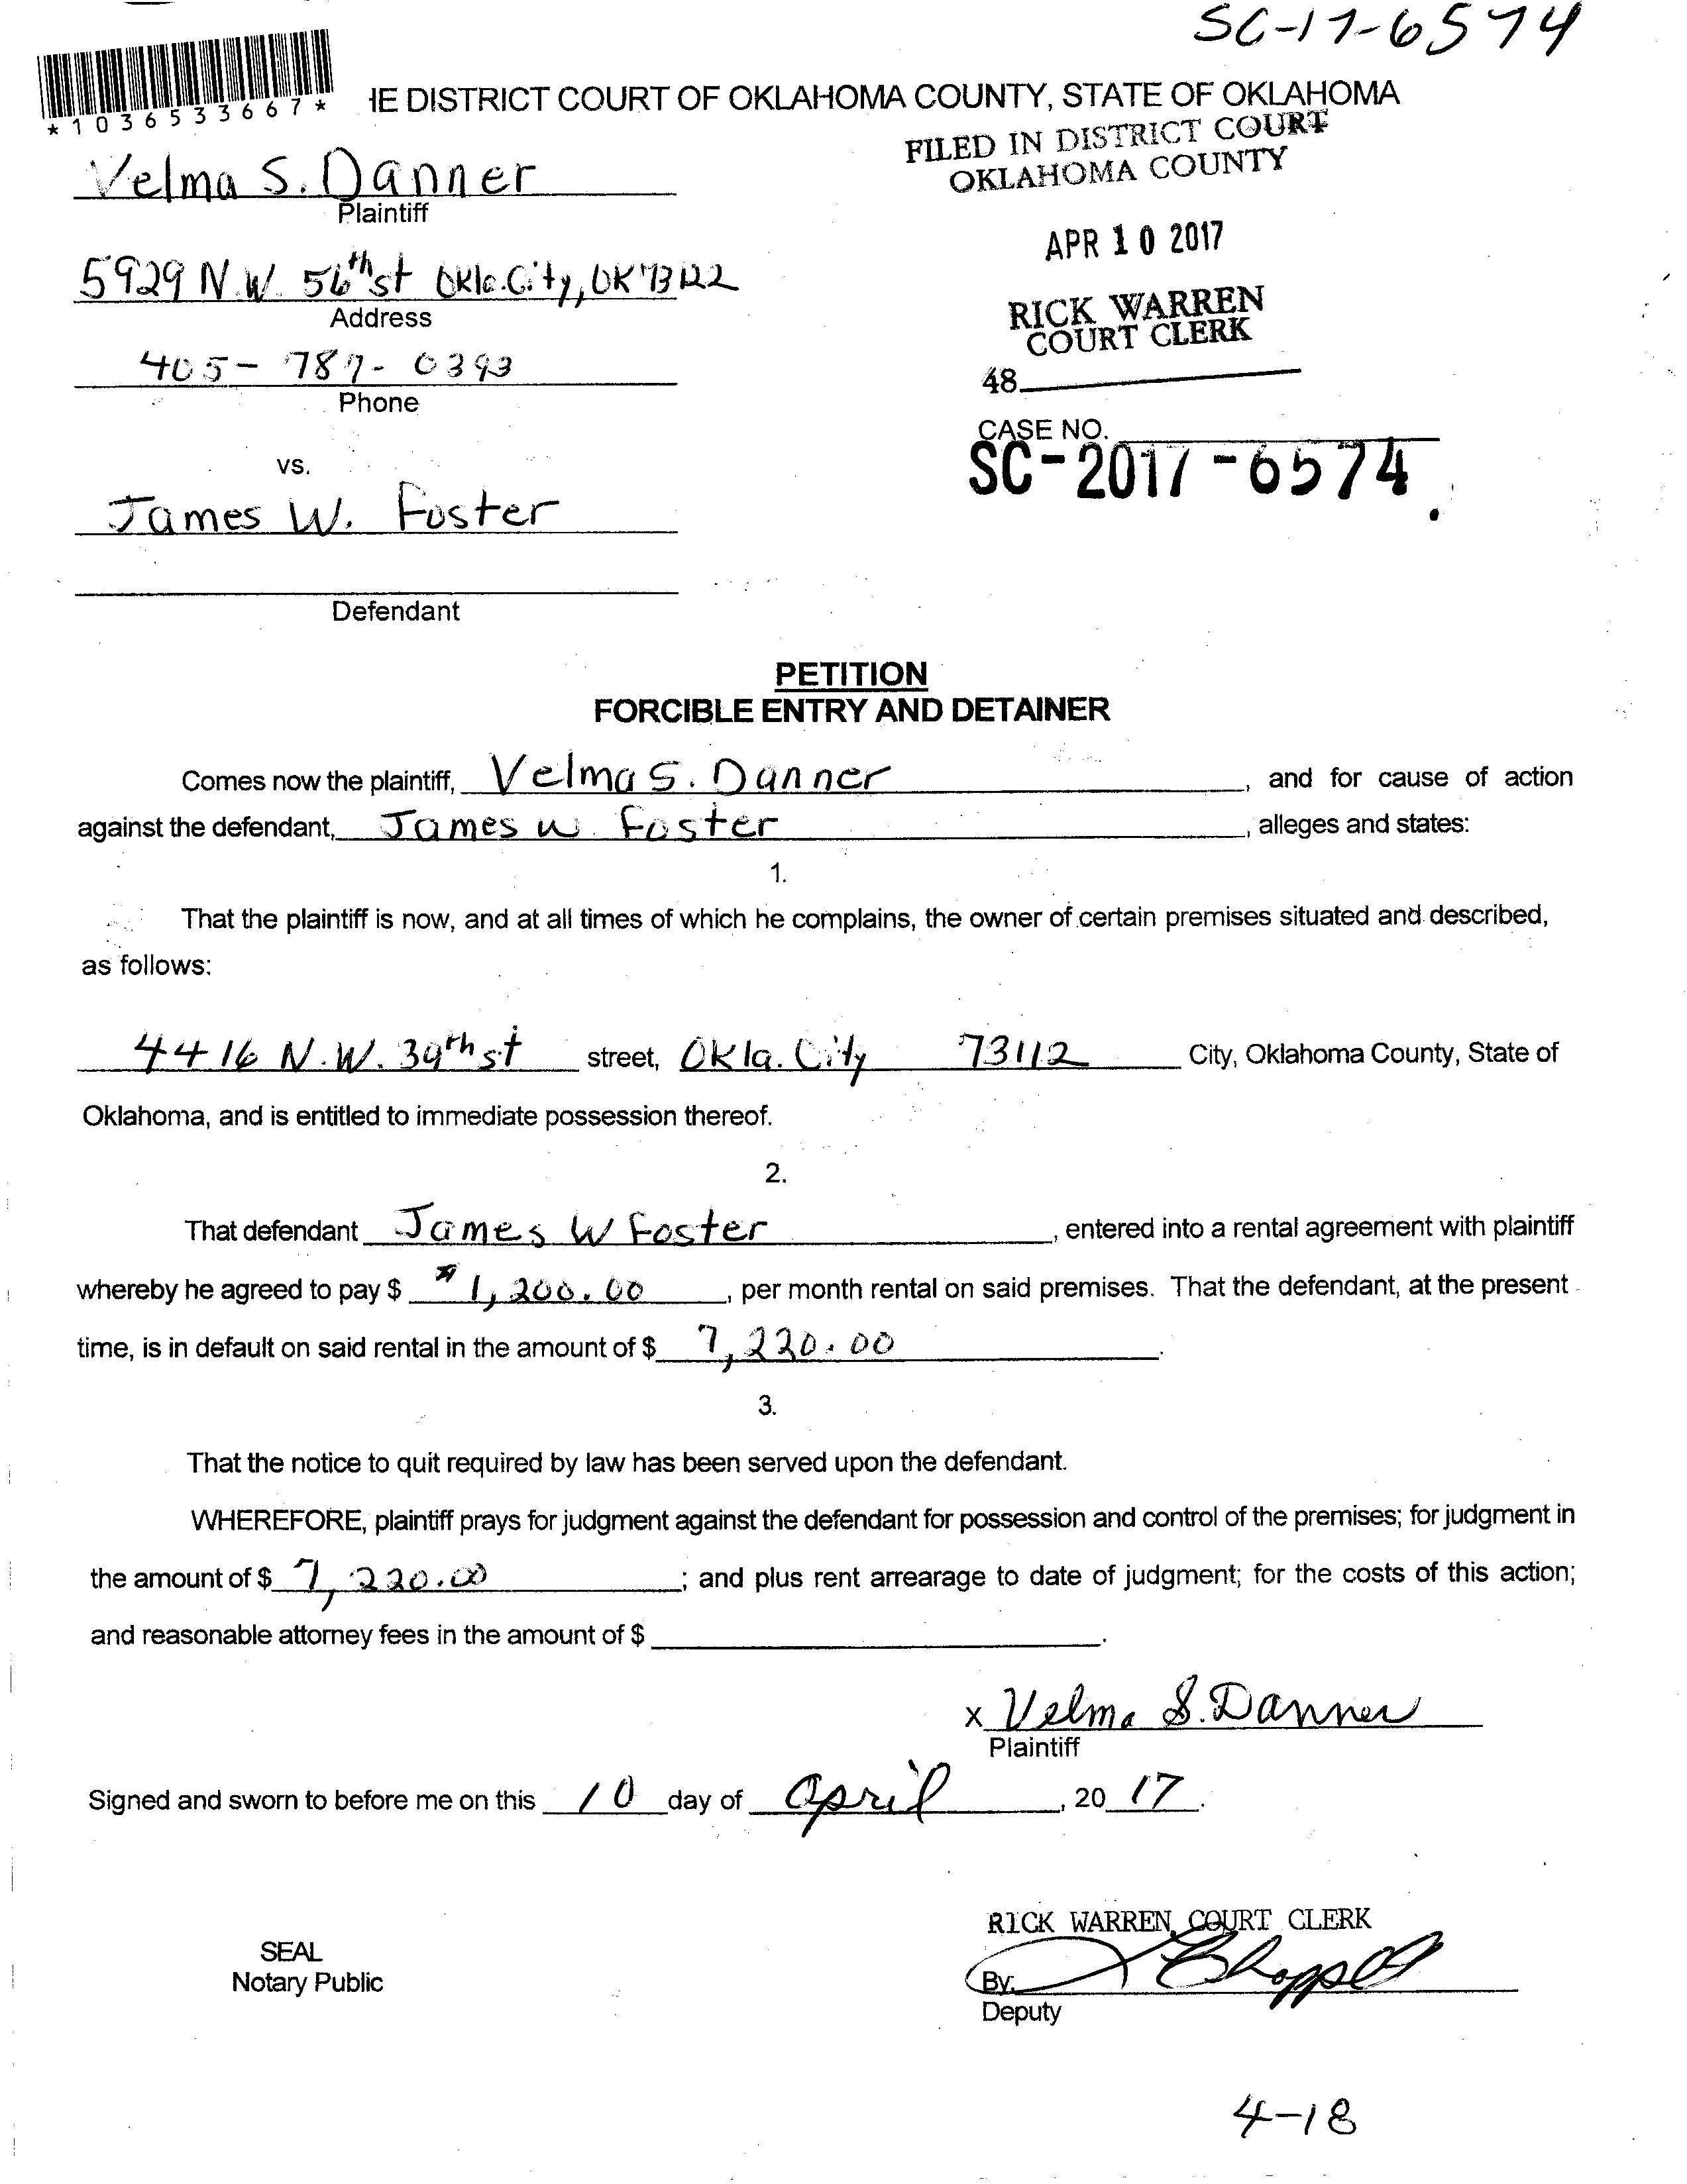 SC-17-6574
*1036533667*
IE DISTRICT COURT OF OKLAHOMA COUNTY, STATE OF OKLAHOMA
FILED IN DISTRICT COURT
OKLAHOMA COUNTY
Velma S. Danner
Plaintiff
APR 10 2017
5929 N.W. 56th st Okla.City, OK 73122
Address
RICK WARREN
COURT CLERK
405-787-0393
Phone
48
CASE NO.
SC-2017-6574
vs.
James W. Foster
Defendant
PETITION
FORCIBLE ENTRY AND DETAINER
Comes now the plaintiff, Velma S. Danner, and for cause of action
against the defendant, James W. Foster, alleges and states:
1.
That the plaintiff is now, and at all times of which he complains, the owner of certain premises situated and described,
as follows:
4416 N.W. 39th st street, Okla. City 73112 City, Oklahoma County, State of
Oklahoma, and is entitled to immediate possession thereof.
2.
That defendant James W Foster, entered into a rental agreement with plaintiff
whereby he agreed to pay $ 1,200.00, per month rental on said premises. That the defendant, at the present
time, is in default on said rental in the amount of $ 7,220.00.
3.
That the notice to quit required by law has been served upon the defendant.
WHEREFORE, plaintiff prays for judgment against the defendant for possession and control of the premises; for judgment in
the amount of $ 7,220.00; and plus rent arrearage to date of judgment; for the costs of this action;
and reasonable attorney fees in the amount of $
x Velma S. Danner
Plaintiff
Signed and sworn to before me on this 10 day of April, 20 17.
RICK WARREN, COURT CLERK
SEAL
Notary Public
By:
Deputy
4-18